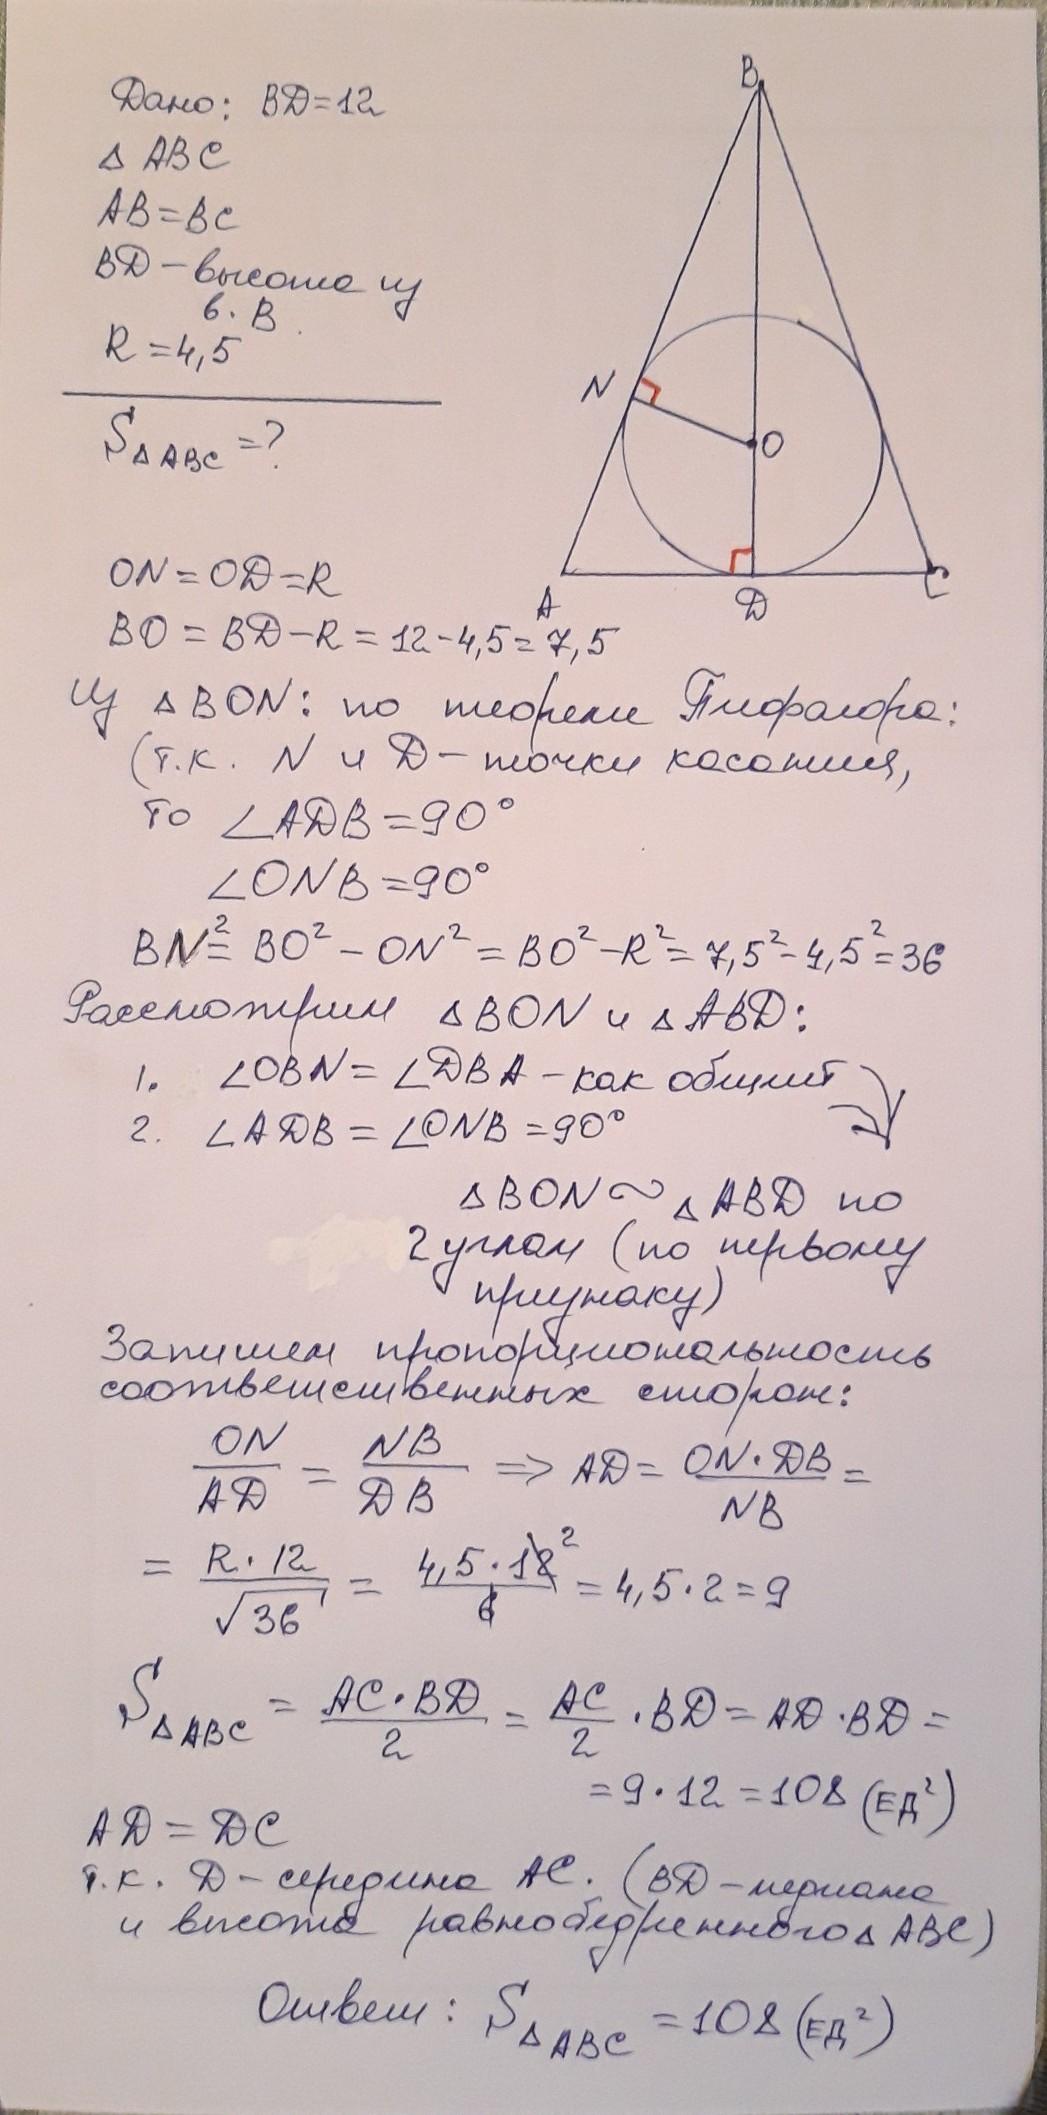 Дано: BD=12
△ ABC
AB=BC
BD - высота из
в. B
R=4,5
S△ABC=?
B
N
O
A
D
C
ON=OD=R
BO=BD-R=12-4,5=7,5
Из △BON: по теореме Пифагора:
(т.к. N и D - точки касания,
то ∠ADB=90°
∠ONB=90°
BN²=BO²-ON²=BO²-R²=7,5²-4,5²=36
Рассмотрим △BON и △ABD:
1. ∠OBN=∠DBA - как общий
2. ∠ADB=∠ONB=90°
△BON ∾ △ABD по
2 углам (по первому
признаку)
Запишем пропорциональность
соответственных сторон:
ON/AD = NB/DB => AD = ON·DB/NB =
= R·12/√36 = 4,5·12/6 2 = 4,5·2=9
S△ABC = AC·BD/2 = AC/2 ·BD = AD·BD =
=9·12=108 (ЕД²)
AD=DC
т.к. D - середина AC. (BD - медиана
и высота равнобедренного △ABC)
Ответ: S△ABC=108 (ЕД²)